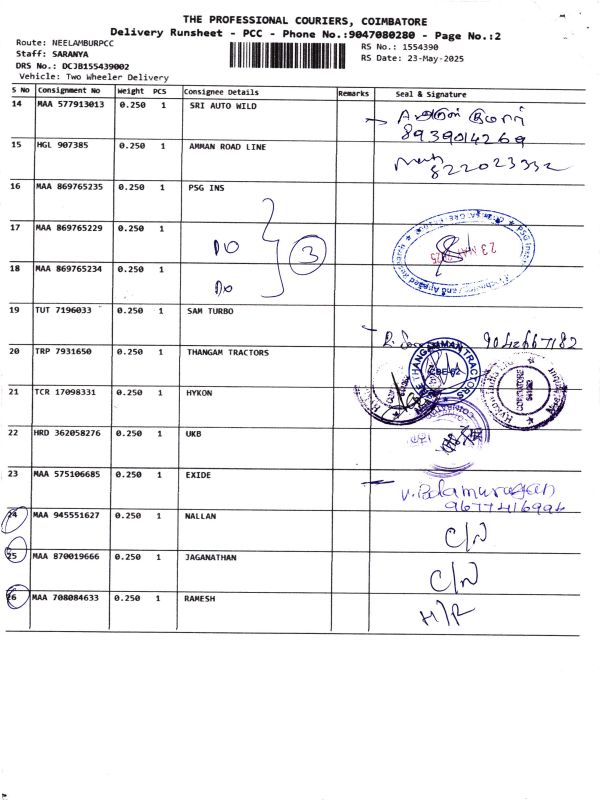 THE PROFESSIONAL COURIERS, COIMBATORE
Delivery Runsheet - PCC - Phone No.:9047080280 - Page No.:2
Route: NEELAMBURPCC
Staff: SARANYA
DRS No.: DCJB155439002
Vehicle: Two Wheeler Delivery
RS No.: 1554390
RS Date: 23-May-2025
S No Consignment No Weight PCS Consignee Details Remarks Seal & Signature
14 MAA 577913013 0.250 1 SRI AUTO WILD
8939014269
15 HGL 907385 0.250 1 AMMAN ROAD LINE
822023332
16 MAA 869765235 0.250 1 PSG INS
17 MAA 869765229 0.250 1 DO 3
23 MAY 2025
18 MAA 869765234 0.250 1 DO
19 TUT 7196033 0.250 1 SAM TURBO
9042667182
20 TRP 7931650 0.250 1 THANGAM TRACTORS
THANGAMMAN TRACTORS
CBE-62
21 TCR 17098331 0.250 1 HYKON
22 HRD 362058276 0.250 1 UKB
23 MAA 575106685 0.250 1 EXIDE
V. Balamurugan
9677416994
24 MAA 945551627 0.250 1 NALLAN C/N
25 MAA 870019666 0.250 1 JAGANATHAN C/N
26 MAA 708084633 0.250 1 RAMESH H/R